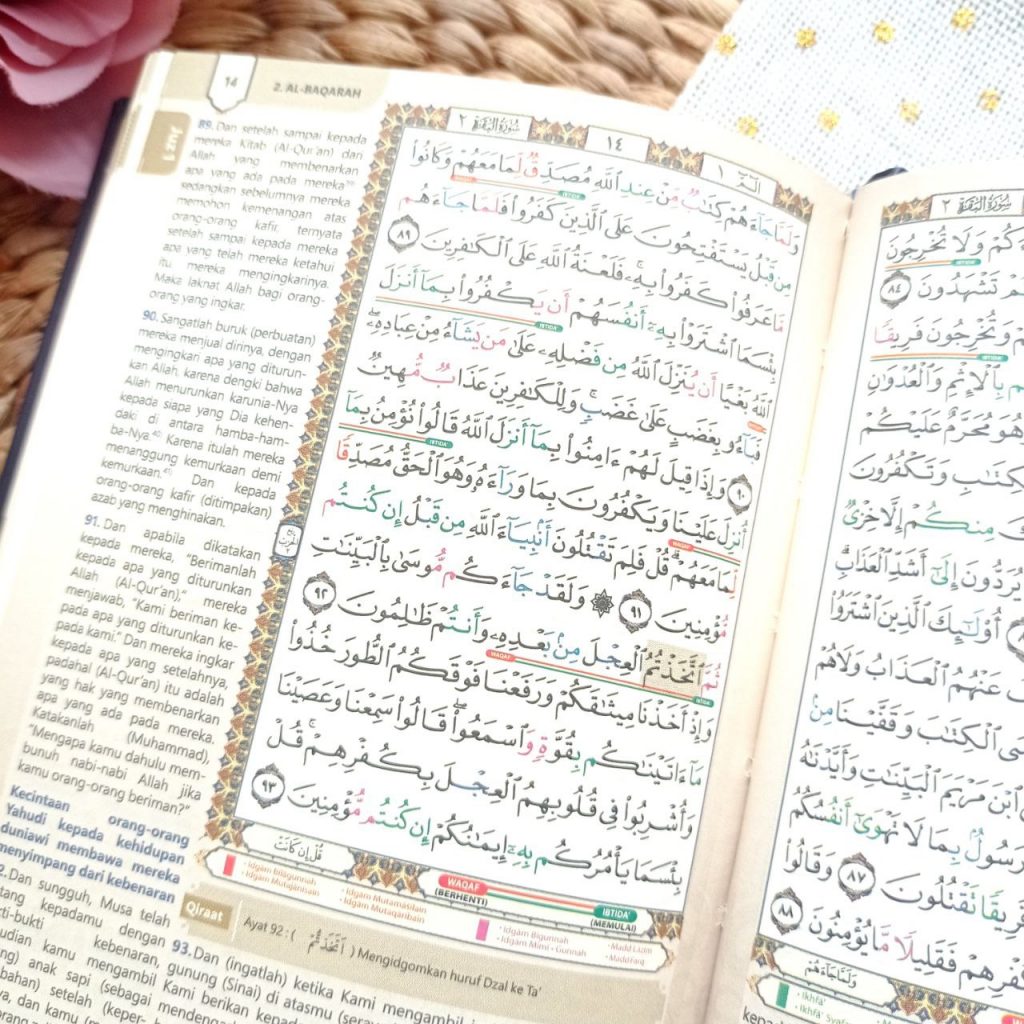 14
2. AL-BAQARAH
Juz 1
89. Dan setelah sampai kepada
mereka Kitab (Al-Qur'an) dari
Allah yang membenarkan
apa yang ada pada mereka
sedangkan sebelumnya mereka
memohon kemenangan atas
orang-orang kafir, ternyata
setelah sampai kepada mereka
apa yang telah mereka ketahui
itu, mereka mengingkarinya.
Maka laknat Allah bagi orang-
orang yang ingkar.
90. Sangatlah buruk (perbuatan)
mereka menjual dirinya, dengan
mengingkari apa yang diturun-
kan Allah, karena dengki bahwa
Allah menurunkan karunia-Nya
kepada siapa yang Dia kehen-
daki di antara hamba-ham-
ba-Nya. Karena itulah mereka
menanggung kemurkaan demi
kemurkaan. Dan kepada
orang-orang kafir (ditimpakan)
azab yang menghinakan.
91. Dan apabila dikatakan
kepada mereka, "Berimanlah
kepada apa yang diturunkan
Allah (Al-Qur'an)," mereka
menjawab, "Kami beriman ke-
pada apa yang diturunkan ke-
pada kami." Dan mereka ingkar
kepada apa yang setelahnya,
padahal (Al-Qur'an) itu adalah
yang hak yang membenarkan
apa yang ada pada mereka.
Katakanlah (Muhammad),
"Mengapa kamu dahulu mem-
bunuh nabi-nabi Allah jika
kamu orang-orang beriman?"
Kecintaan orang-orang
Yahudi kepada kehidupan
duniawi membawa mereka
menyimpang dari kebenaran
2. Dan sungguh, Musa telah
tang kepadamu dengan
kti-bukti kebenaran,
udian kamu mengambil
anak sapi (sebagai
bahan) setelah (keper-
سُورَةُ الْبَقَرَةِ ٢
١٤
الٓمّٓ ١
وَلَمَّا جَآءَهُمْ كِتَٰبٌ مِّنْ عِندِ ٱللَّهِ مُصَدِّقٌ لِّمَا مَعَهُمْ وَكَانُوا۟
مِن قَبْلُ يَسْتَفْتِحُونَ عَلَى ٱلَّذِينَ كَفَرُوا۟ فَلَمَّا جَآءَهُم
مَّا عَرَفُوا۟ كَفَرُوا۟ بِهِۦ ۚ فَلَعْنَةُ ٱللَّهِ عَلَى ٱلْكَٰفِرِينَ ٨٩
بِئْسَمَا ٱشْتَرَوْا۟ بِهِۦٓ أَنفُسَهُمْ أَن يَكْفُرُوا۟ بِمَآ أَنزَلَ
ٱللَّهُ بَغْيًا أَن يُنَزِّلَ ٱللَّهُ مِن فَضْلِهِۦ عَلَىٰ مَن يَشَآءُ مِنْ عِبَادِهِۦ ۖ
فَبَآءُو بِغَضَبٍ عَلَىٰ غَضَبٍ ۚ وَلِلْكَٰفِرِينَ عَذَابٌ مُّهِينٌ
٩٠ وَإِذَا قِيلَ لَهُمْ ءَامِنُوا۟ بِمَآ أَنزَلَ ٱللَّهُ قَالُوا۟ نُؤْمِنُ بِمَآ
أُنزِلَ عَلَيْنَا وَيَكْفُرُونَ بِمَا وَرَآءَهُۥ وَهُوَ ٱلْحَقُّ مُصَدِّقًا
لِّمَا مَعَهُمْ ۗ قُلْ فَلِمَ تَقْتُلُونَ أَنۢبِيَآءَ ٱللَّهِ مِن قَبْلُ إِن كُنتُم
مُّؤْمِنِينَ ٩١ ۞ وَلَقَدْ جَآءَكُم مُّوسَىٰ بِٱلْبَيِّنَٰتِ
ثُمَّ ٱتَّخَذْتُمُ ٱلْعِجْلَ مِنۢ بَعْدِهِۦ وَأَنتُمْ ظَٰلِمُونَ ٩٢
وَإِذْ أَخَذْنَا مِيثَٰقَكُمْ وَرَفَعْنَا فَوْقَكُمُ ٱلطُّورَ خُذُوا۟
مَآ ءَاتَيْنَٰكُم بِقُوَّةٍ وَٱسْمَعُوا۟ ۖ قَالُوا۟ سَمِعْنَا وَعَصَيْنَا
وَأُشْرِبُوا۟ فِى قُلُوبِهِمُ ٱلْعِجْلَ بِكُفْرِهِمْ ۚ قُلْ
بِئْسَمَا يَأْمُرُكُم بِهِۦٓ إِيمَٰنُكُمْ إِن كُنتُم مُّؤْمِنِينَ ٩٣
قُلْ إِن كَانَتْ
• Idgam Bilagunnah
• Idgam Mutajanisain
• Idgam Mutamasilain
• Idgam Mutaqaribain
WAQAF
(BERHENTI)
IBTIDA'
(MEMULAI)
• Idgam Bigunnah
• Idgam Mimi - Gunnah
• Mad Lazim
• Mad Farq
Qiraat
Ayat 92 : ( اتَّخَذْتُمُ ) Mengidgomkan huruf Dzal ke Ta'
93. Dan (ingatlah) ketika Kami mengambil
gunung (Sinai) di atasmu
Kami berikan kepada
سُورَةُ الْبَقَرَةِ ٢
وَلَا تُخْرِجُونَ
تَشْهَدُونَ ٨٤
وَتُخْرِجُونَ فَرِيقًا
بِٱلْإِثْمِ وَٱلْعُدْوَٰنِ
هُوَ مُحَرَّمٌ عَلَيْكُمْ
وَتَكْفُرُونَ
مِنكُمْ إِلَّا خِزْىٌ
يُرَدُّونَ إِلَىٰٓ أَشَدِّ ٱلْعَذَابِ ۗ
أُو۟لَٰٓئِكَ ٱلَّذِينَ ٱشْتَرَوُا۟
عَنْهُمُ ٱلْعَذَابُ وَلَا هُمْ
ٱلْكِتَٰبَ وَقَفَّيْنَا مِنۢ
ٱبْنَ مَرْيَمَ ٱلْبَيِّنَٰتِ وَأَيَّدْنَٰهُ
رَسُولٌۢ بِمَا لَا تَهْوَىٰٓ أَنفُسُكُمُ
تَقْتُلُونَ ٨٧ وَقَالُوا۟
فَقَلِيلًا مَّا يُؤْمِنُونَ ٨٨
وَلَمَّا جَآءَهُمْ
• Ikhfa'